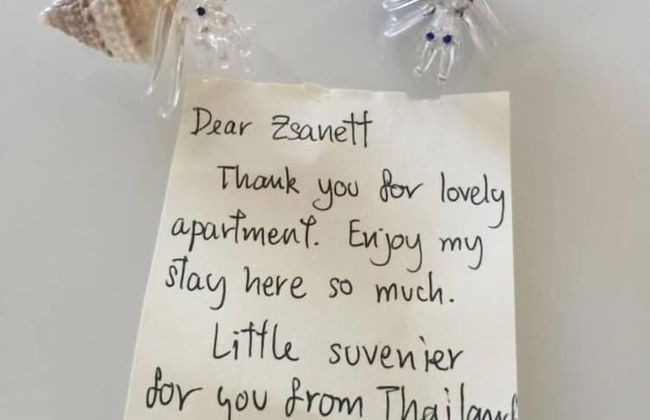 Dear Zsanett
Thank you for lovely
apartment. Enjoy my
stay here so much.
Little suvenier
for you from Thailand